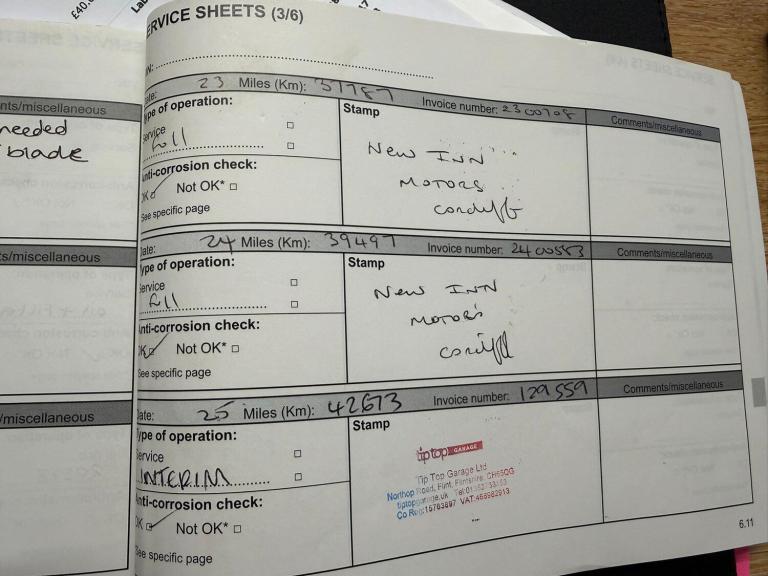 £40.0
ERVICE SHEETS (3/6)
nts/miscellaneous
needed
blade
s/miscellaneous
/miscellaneous
ate: 23 Miles (Km): 37787 Invoice number: 2300708 Comments/miscellaneous
ype of operation:
ervice
full
Anti-corrosion check:
OK Not OK*
See specific page
Stamp
New INN
MOTORS
Cardiff
Date: 24 Miles (Km): 39497 Invoice number: 2400553 Comments/miscellaneous
Type of operation:
Service
full
Anti-corrosion check:
OK Not OK*
See specific page
Stamp
New INN
MOTORS
Cardiff
Date: 25 Miles (Km): 42673 Invoice number: 129559 Comments/miscellaneous
Type of operation:
Service
INTERIM
Anti-corrosion check:
OK Not OK*
See specific page
Stamp
tiptop GARAGE
Tip Top Garage Ltd
Northop Road, Flint, Flintshire, CH65QG
tiptopgarage.uk Tel:01352733153
Co Reg:15703697 VAT:466982913
6.11